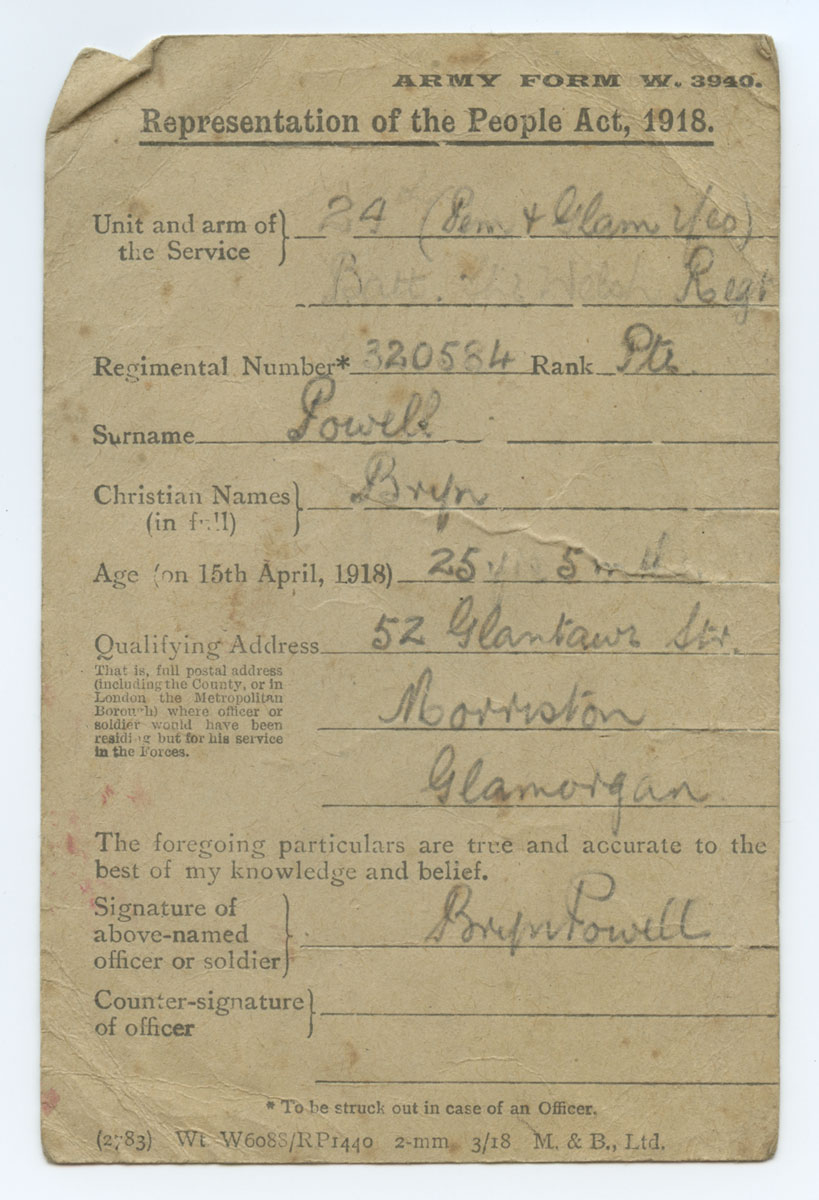 ARMY FORM W. 3940.
Representation of the People Act, 1918.
Unit and arm of the Service } 24 (Pem & Glam Yeo)
Batt. The Welsh Regt
Regimental Number* 320584 Rank Pte
Surname Powell
Christian Names (in full) } Bryn
Age (on 15th April, 1918) 25 yrs 5 mth
Qualifying Address 52 Glantawe Str.
That is, full postal address
(including the County, or in
London the Metropolitan
Borough) where officer or
soldier would have been
residing but for his service
in the Forces.
Morriston
Glamorgan
The foregoing particulars are true and accurate to the
best of my knowledge and belief.
Signature of
above-named
officer or soldier } Bryn Powell
Counter-signature
of officer }
* To be struck out in case of an Officer.
(2783) Wt W6088/RP1440 2-mm 3/18 M. & B., Ltd.